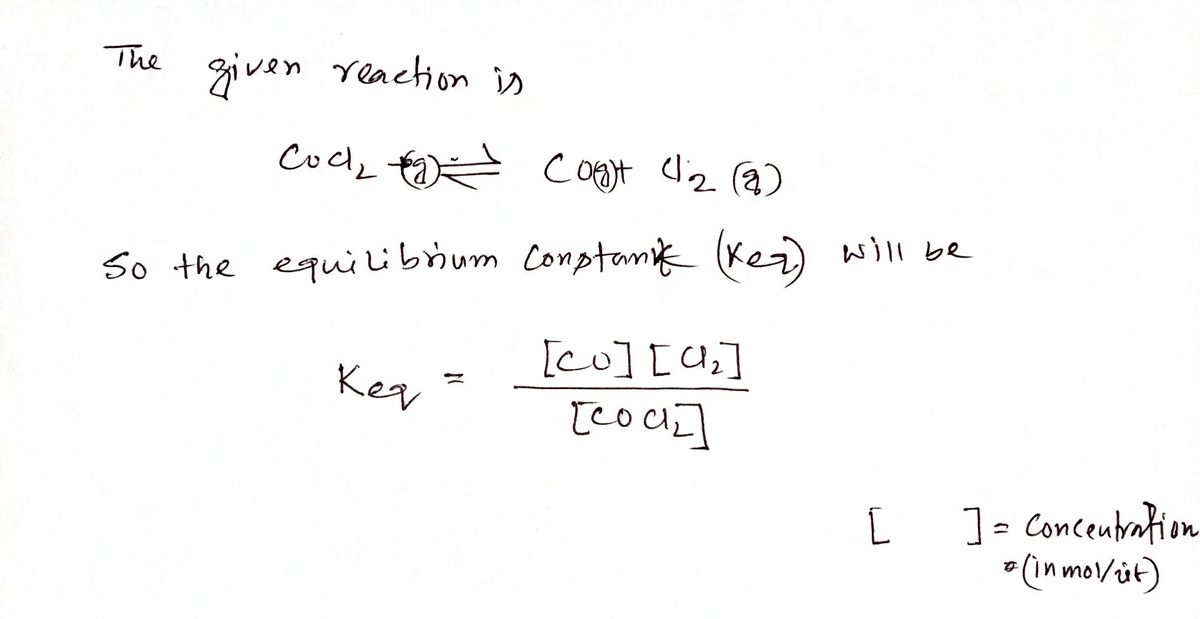 The given reaction is
COCl₂ (g) ⇌ CO(g) + Cl₂ (g)
So the equilibrium constant (Keq) will be
Keq = [CO] [Cl₂] / [COCl₂]
[ ] = Concentration
(in mol/lit)